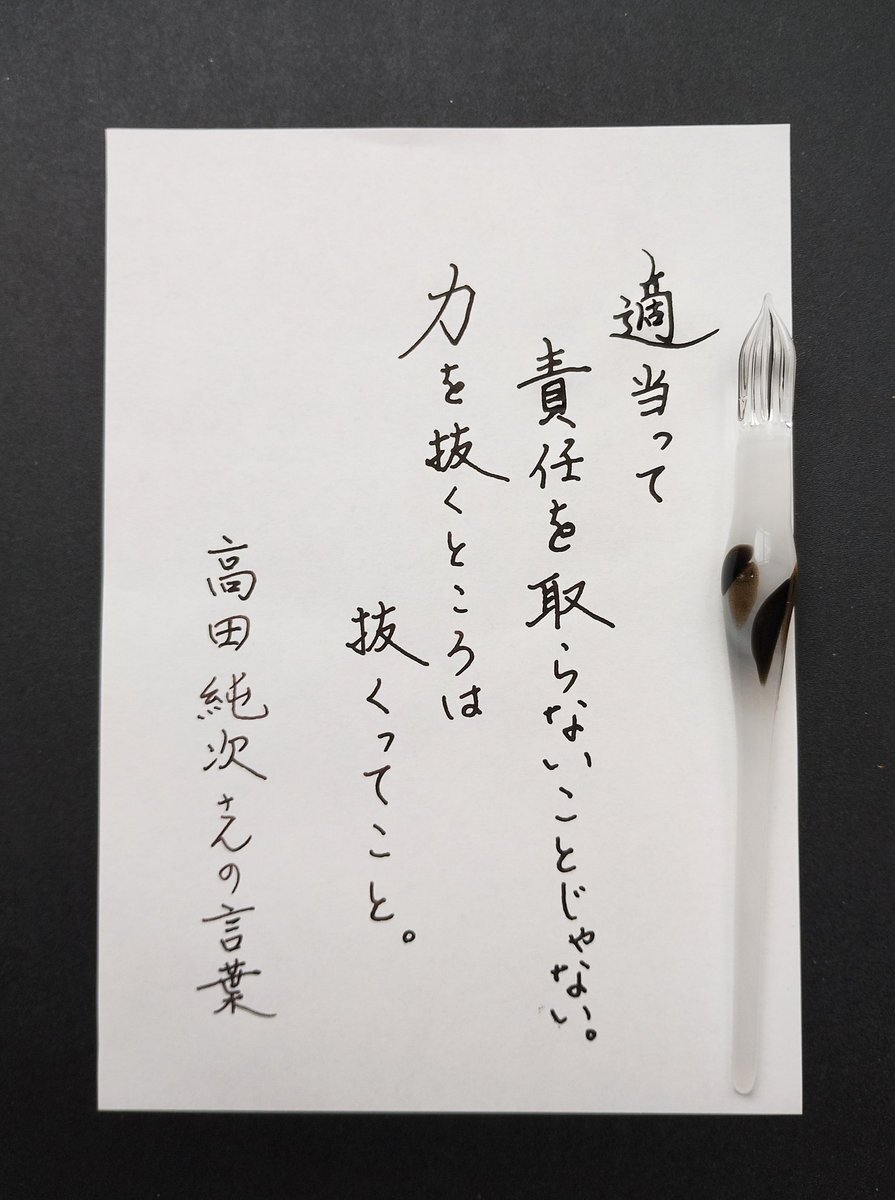 適当って
責任を取らないことじゃない。
力を抜くところは
抜くってこと。
高田純次さんの言葉